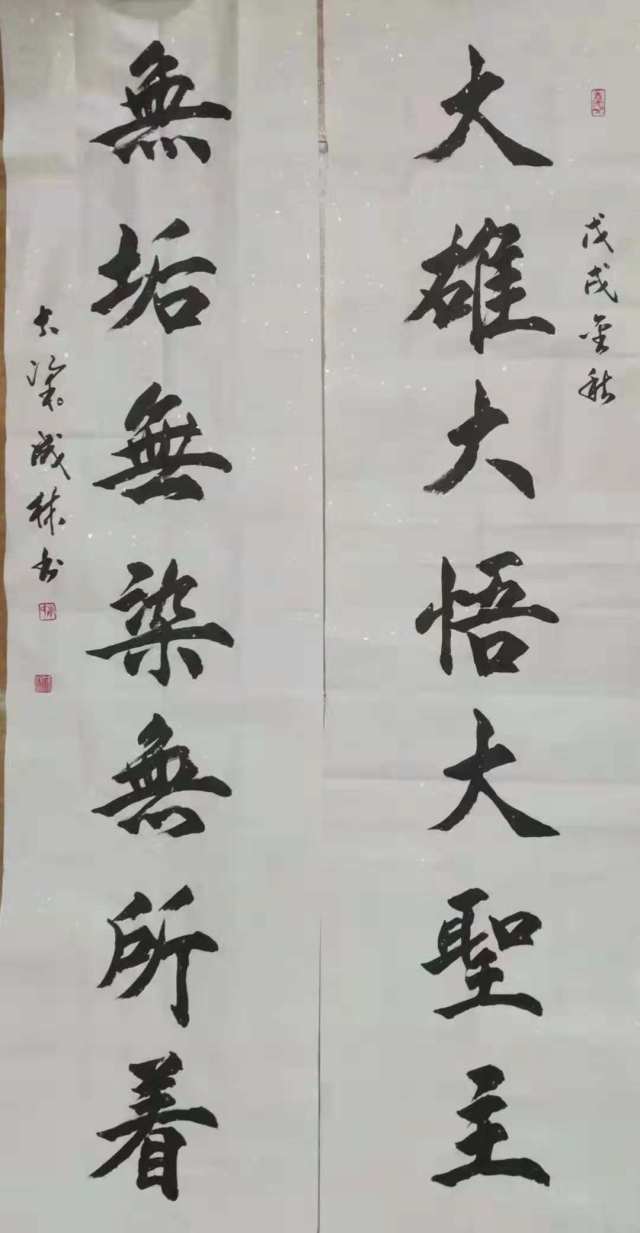 戊戌金秋
大雄大悟大聖主
無垢無染無所着
成林书